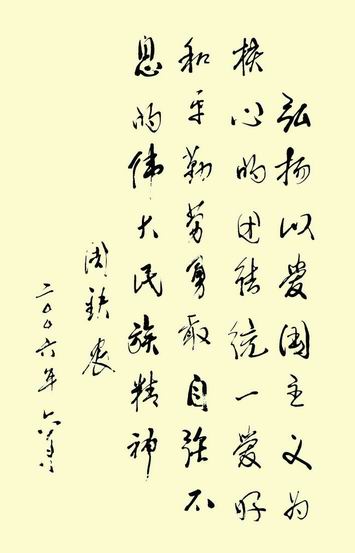 弘扬以爱国主义为
核心的团结统一爱好
和平勤劳勇敢自强不
息的伟大民族精神
周铁农
二〇〇六年